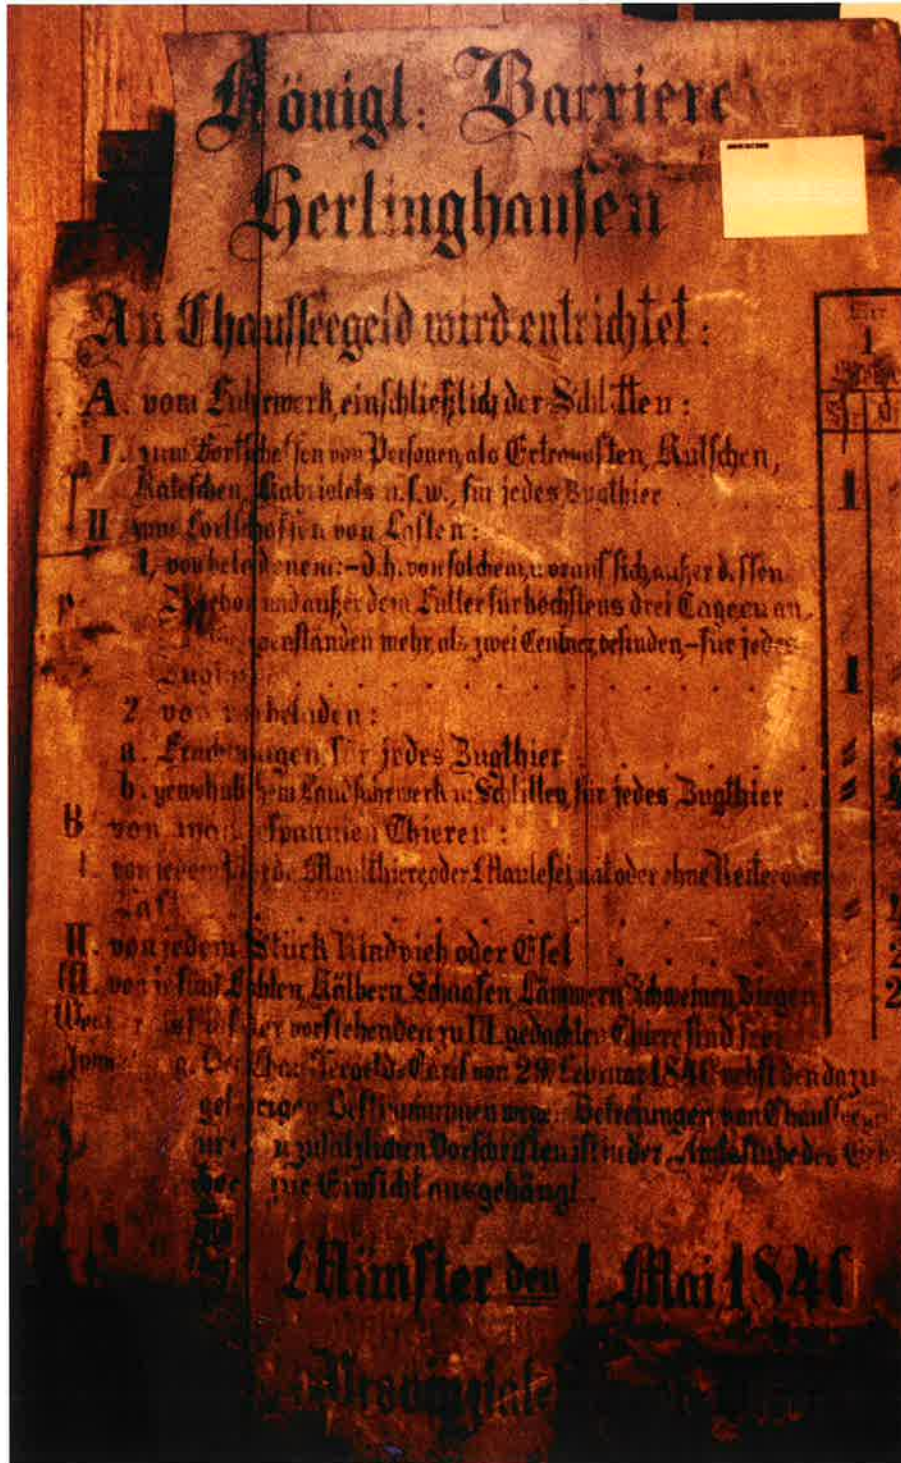 Königl: Barriere
Herlinghausen
An Chausseegeld wird entrichtet:
A. vom Fuhrwerk, einschließlich der Schlitten:
I. zum Fortschaffen von Personen, als Extraposten, Kutschen,
Kaleschen, Kabriolets u.s.w., für jedes Zugthier
1
II zum Fortschaffen von Lasten:
1, von beladenem:-d.h. von solchem, worauf sich außer dessen
Zubehör und außer dem Futter für höchstens drei Tage, an
genständen mehr als zwei Centner, befinden,-für jedes
Zugthier
1
2 von unbeladen:
a. Frachtwagen für jedes Zugthier
b. gewöhnlichem Landfuhrwerk u Schlitten, für jedes Zugthier
B von unangespannten Thieren:
I. von jedem Pferde, Maulthiere, oder Maulesel, mit oder ohne Reiter oder
Last
II. von jedem Stück Rindvieh oder Esel
2
III. von je fünf Fohlen, Kälbern, Schaafen, Lämmern, Schweinen, Ziegen
2
Wen als fünf der vorstehenden zu III. gedachten Thiere sind frei
Der Chausseegeld-Tarif vom 29. Februar 1840 nebst den dazu
gehörigen Bestimmungen wegen Befreiungen von Chaussee
zusätzlichen Vorschriften ist in der Amtsstube des
zur Einsicht ausgehängt.
Münster den 1. Mai 1840
Provinzial-